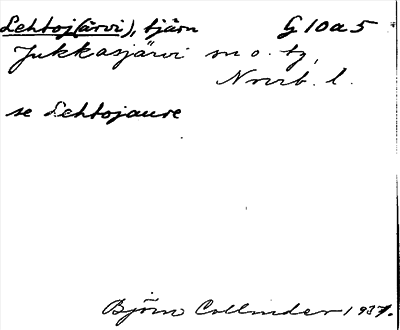 Lehtoj(ärvi), tjärn G 10 a 5
Jukkasjärvi sn o. tg,
Norrb. l.
se Lehtojaure
Björn Collinder 1937.